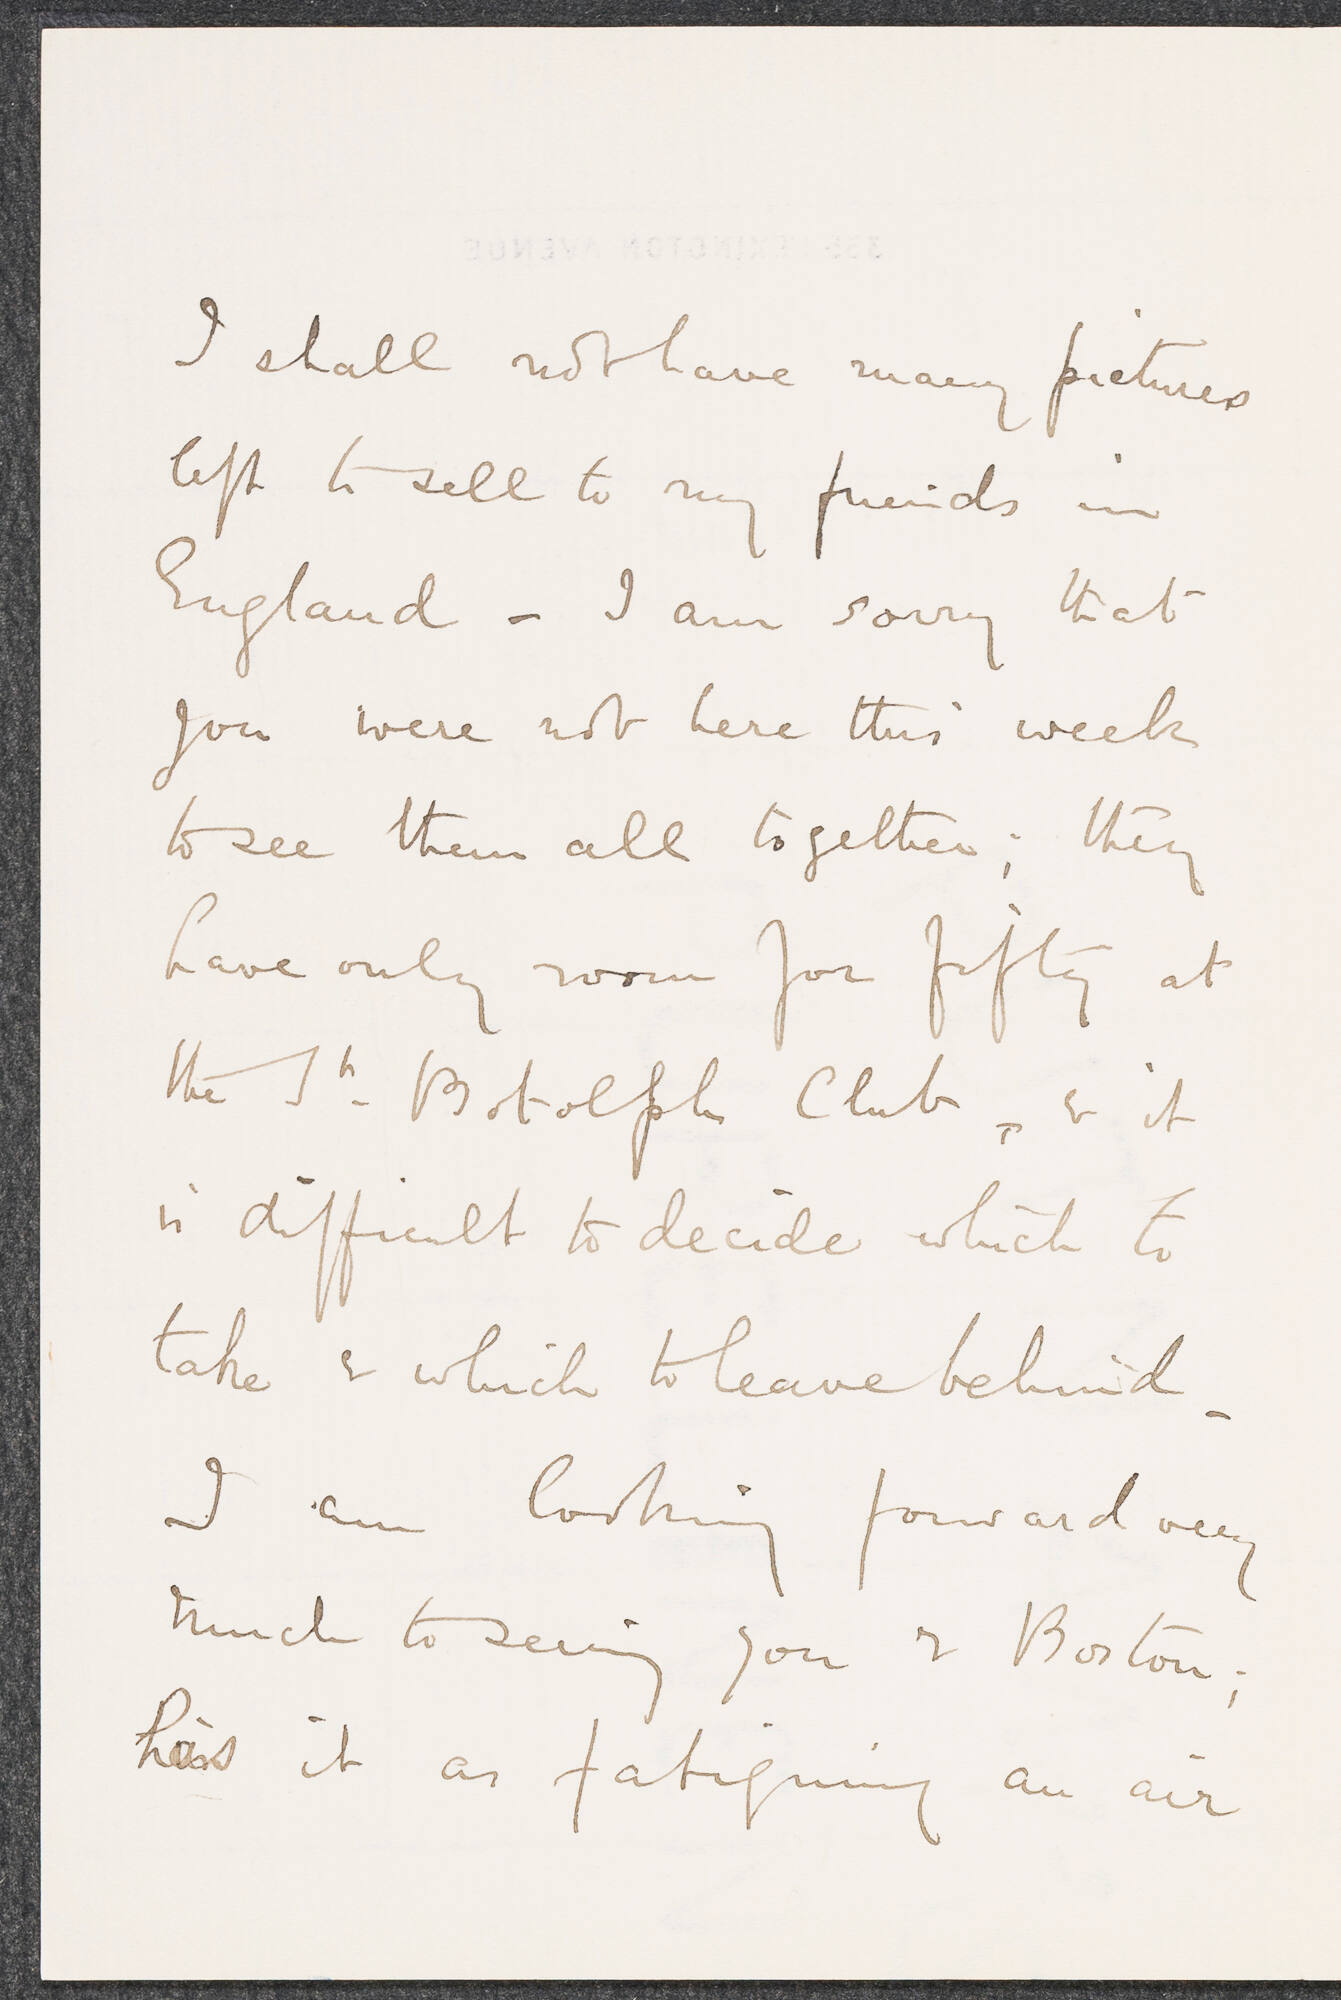 I shall not have many pictures
left to sell to my friends in
England – I am sorry that
you were not here this week
to see them all together; they
have only room for fifty at
the St. Botolph Club, & it
is difficult to decide which to
take & which to leave behind –
I am looking forward very
much to seeing you & Boston;
has it as fatiguing an air